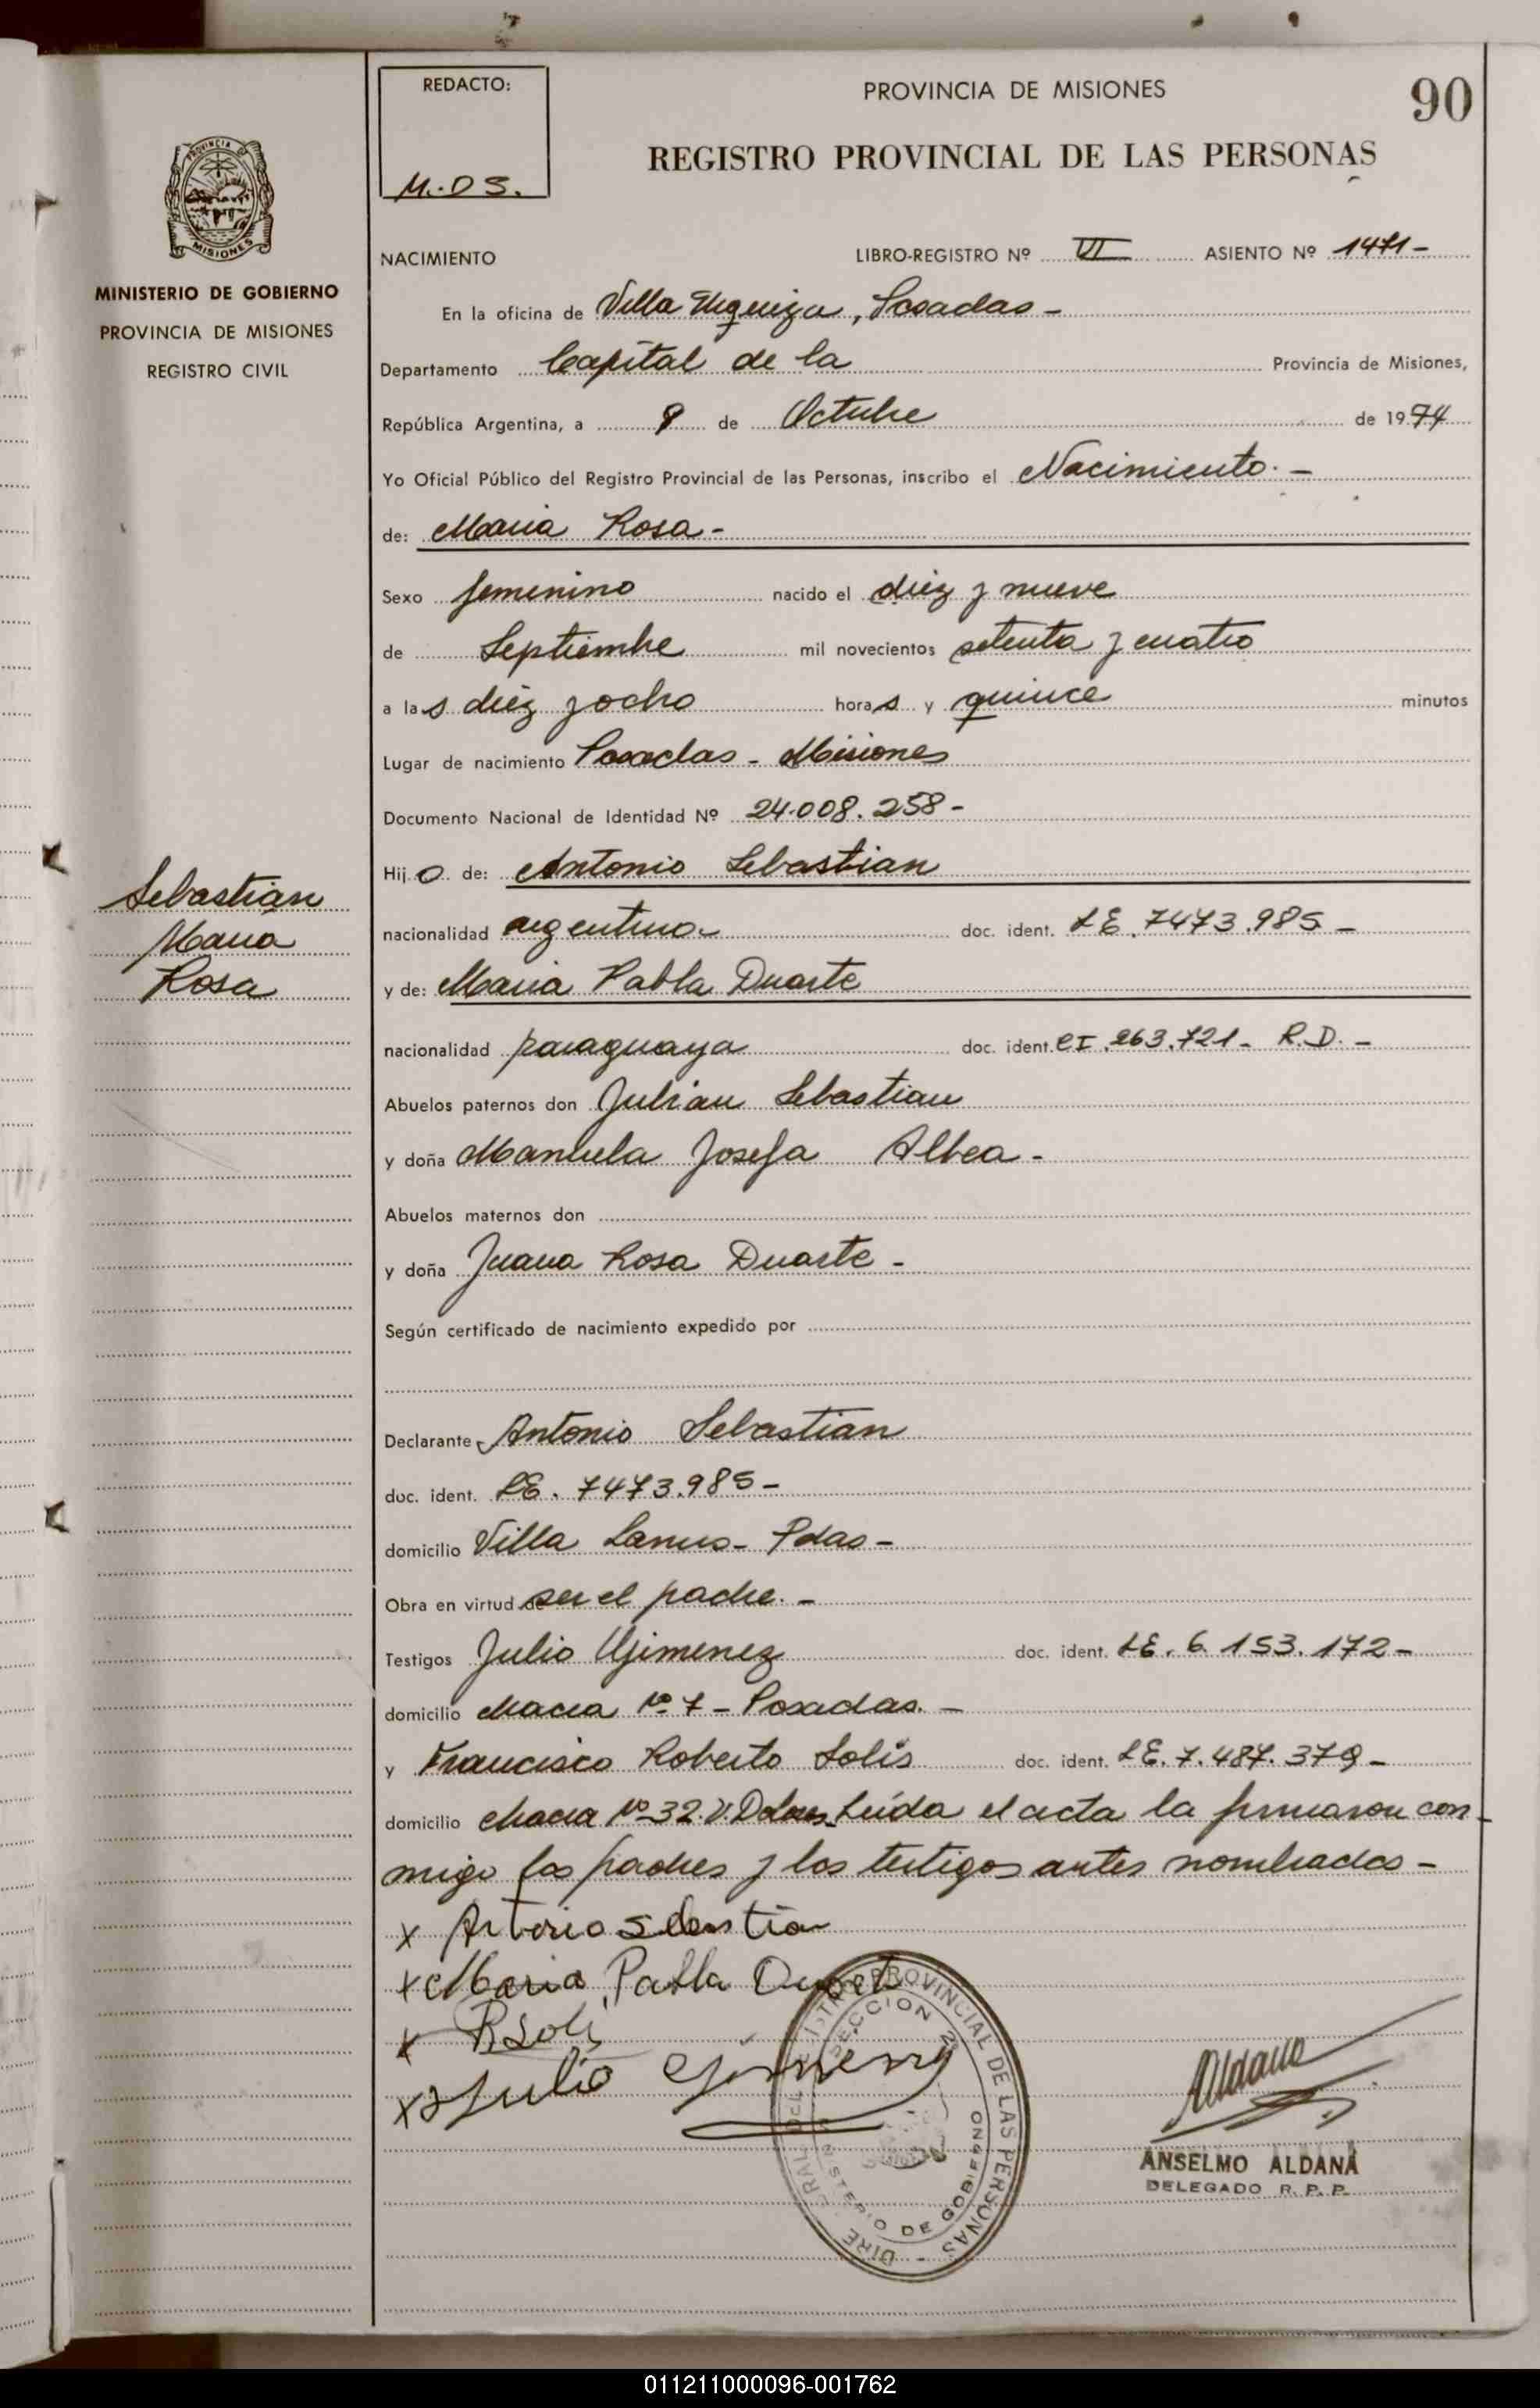 REDACTO:
M.DS.
PROVINCIA DE MISIONES
90
REGISTRO PROVINCIAL DE LAS PERSONAS
PROVINCIA DE
MISIONES
MINISTERIO DE GOBIERNO
PROVINCIA DE MISIONES
REGISTRO CIVIL
NACIMIENTO LIBRO-REGISTRO Nº VI ASIENTO Nº 1471-
En la oficina de Villa Urquiza, Posadas-
Departamento Capital de la Provincia de Misiones,
República Argentina, a 9 de Octubre de 1974
Yo Oficial Público del Registro Provincial de las Personas, inscribo el Nacimiento.-
de: Maria Rosa-
Sexo femenino nacido el diez y nueve
de Septiembre mil novecientos setenta y cuatro
a las diez y ocho horas y quince minutos
Lugar de nacimiento Posadas - Misiones
Documento Nacional de Identidad Nº 24.008.258-
Hijo de: Antonio Sebastian
Sebastian
Maria
Rosa
nacionalidad argentino- doc. ident. LE.7473.985-
y de: Maria Pabla Duarte
nacionalidad paraguaya doc. ident. CI.263.721- R.D.-
Abuelos paternos don Julian Sebastian
y doña Manuela Josefa Albea-
Abuelos maternos don
y doña Juana Rosa Duarte-
Según certificado de nacimiento expedido por
Declarante Antonio Sebastian
doc. ident. LE. 7473.985-
domicilio Villa Lanus- Pdas-
Obra en virtud de ser el padre.-
Testigos Julio Gimenez doc. ident. LE. 6.153.172-
domicilio chacra Nº 7 - Posadas.-
y Francisco Roberto Solis doc. ident. LE.7.487.379-
domicilio chacra Nº 32.V.Dolores Leida el acta la firmaron con-
migo los padres y los testigos antes nombrados-
x Antonio Sebastian
x Maria Pabla Duarte
x R Solis
x Julio Gimenez
DIRECCION GRAL. DEL REGISTRO PROVINCIAL DE LAS PERSONAS
SECCION 2ª
MINISTERIO DE GOBIERNO
Aldana
ANSELMO ALDANA
DELEGADO R. P. P.
011211000096-001762